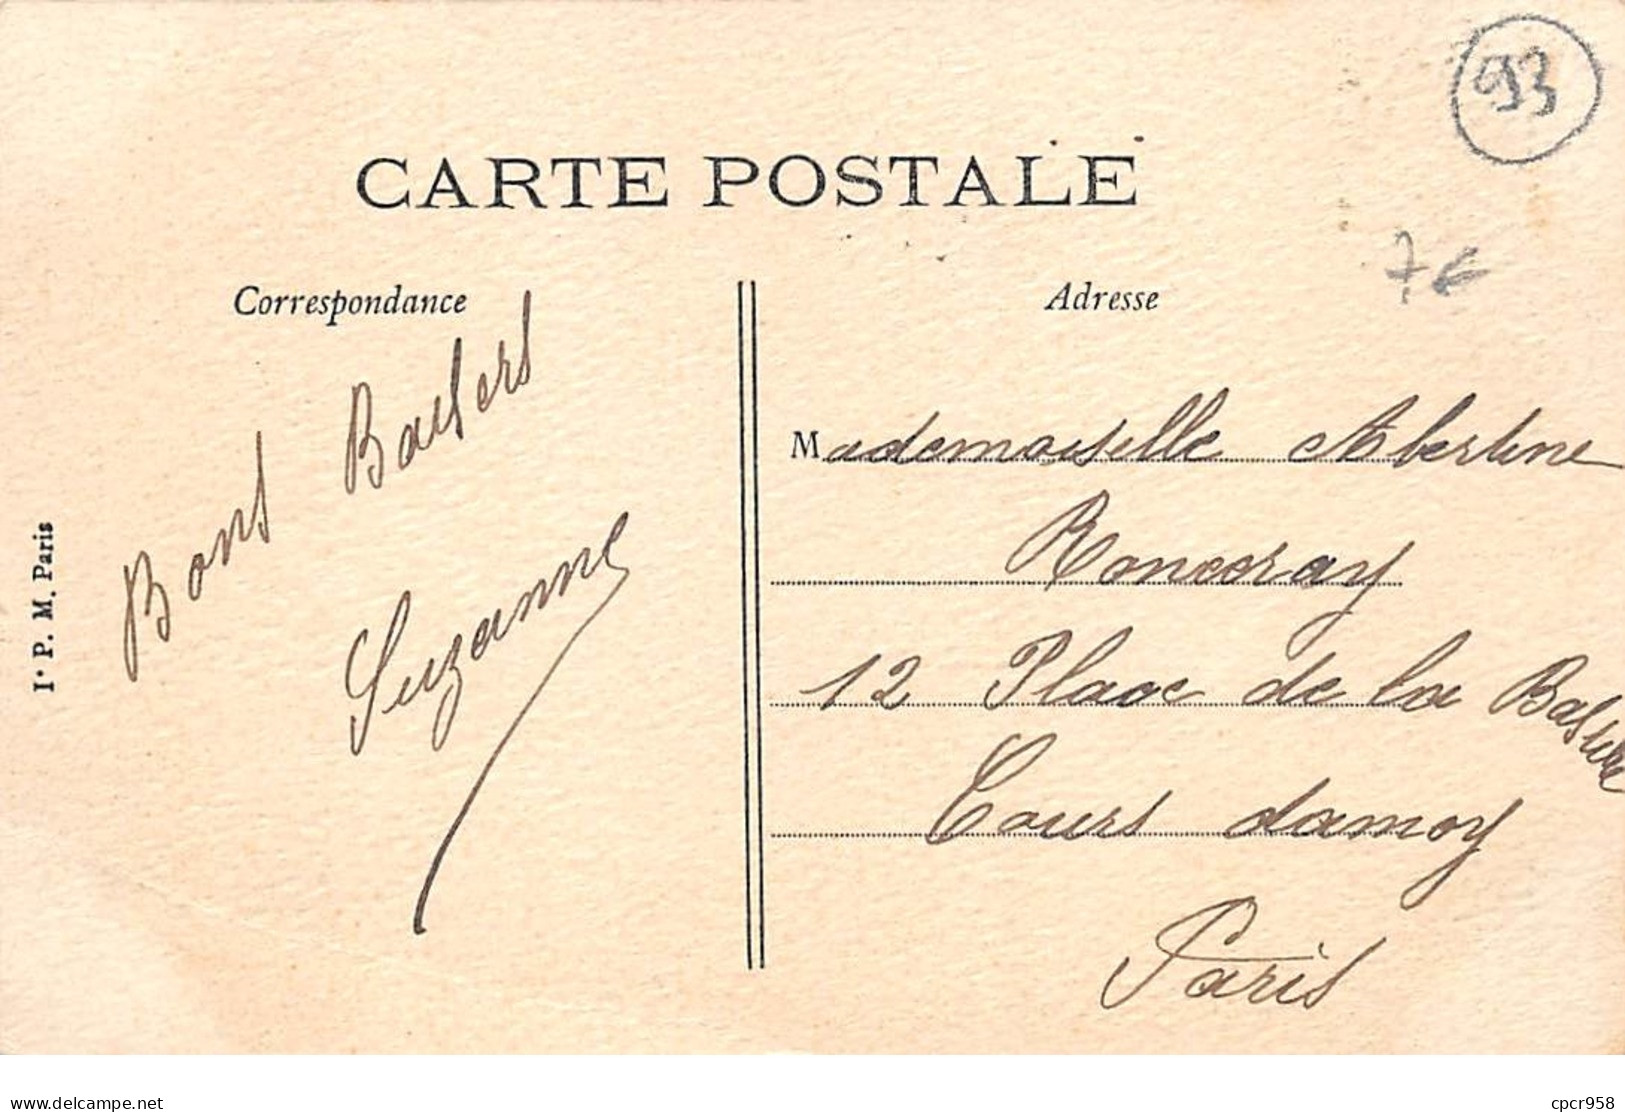 93
CARTE POSTALE
7€
Correspondance
Adresse
Bons Baisers
Suzanne
Mademoiselle Albertine
Ronceray
12 Place de la Bastille
Cours damoy
Paris
Iᵉ P. M. Paris
www.delcampe.net
cpcr958